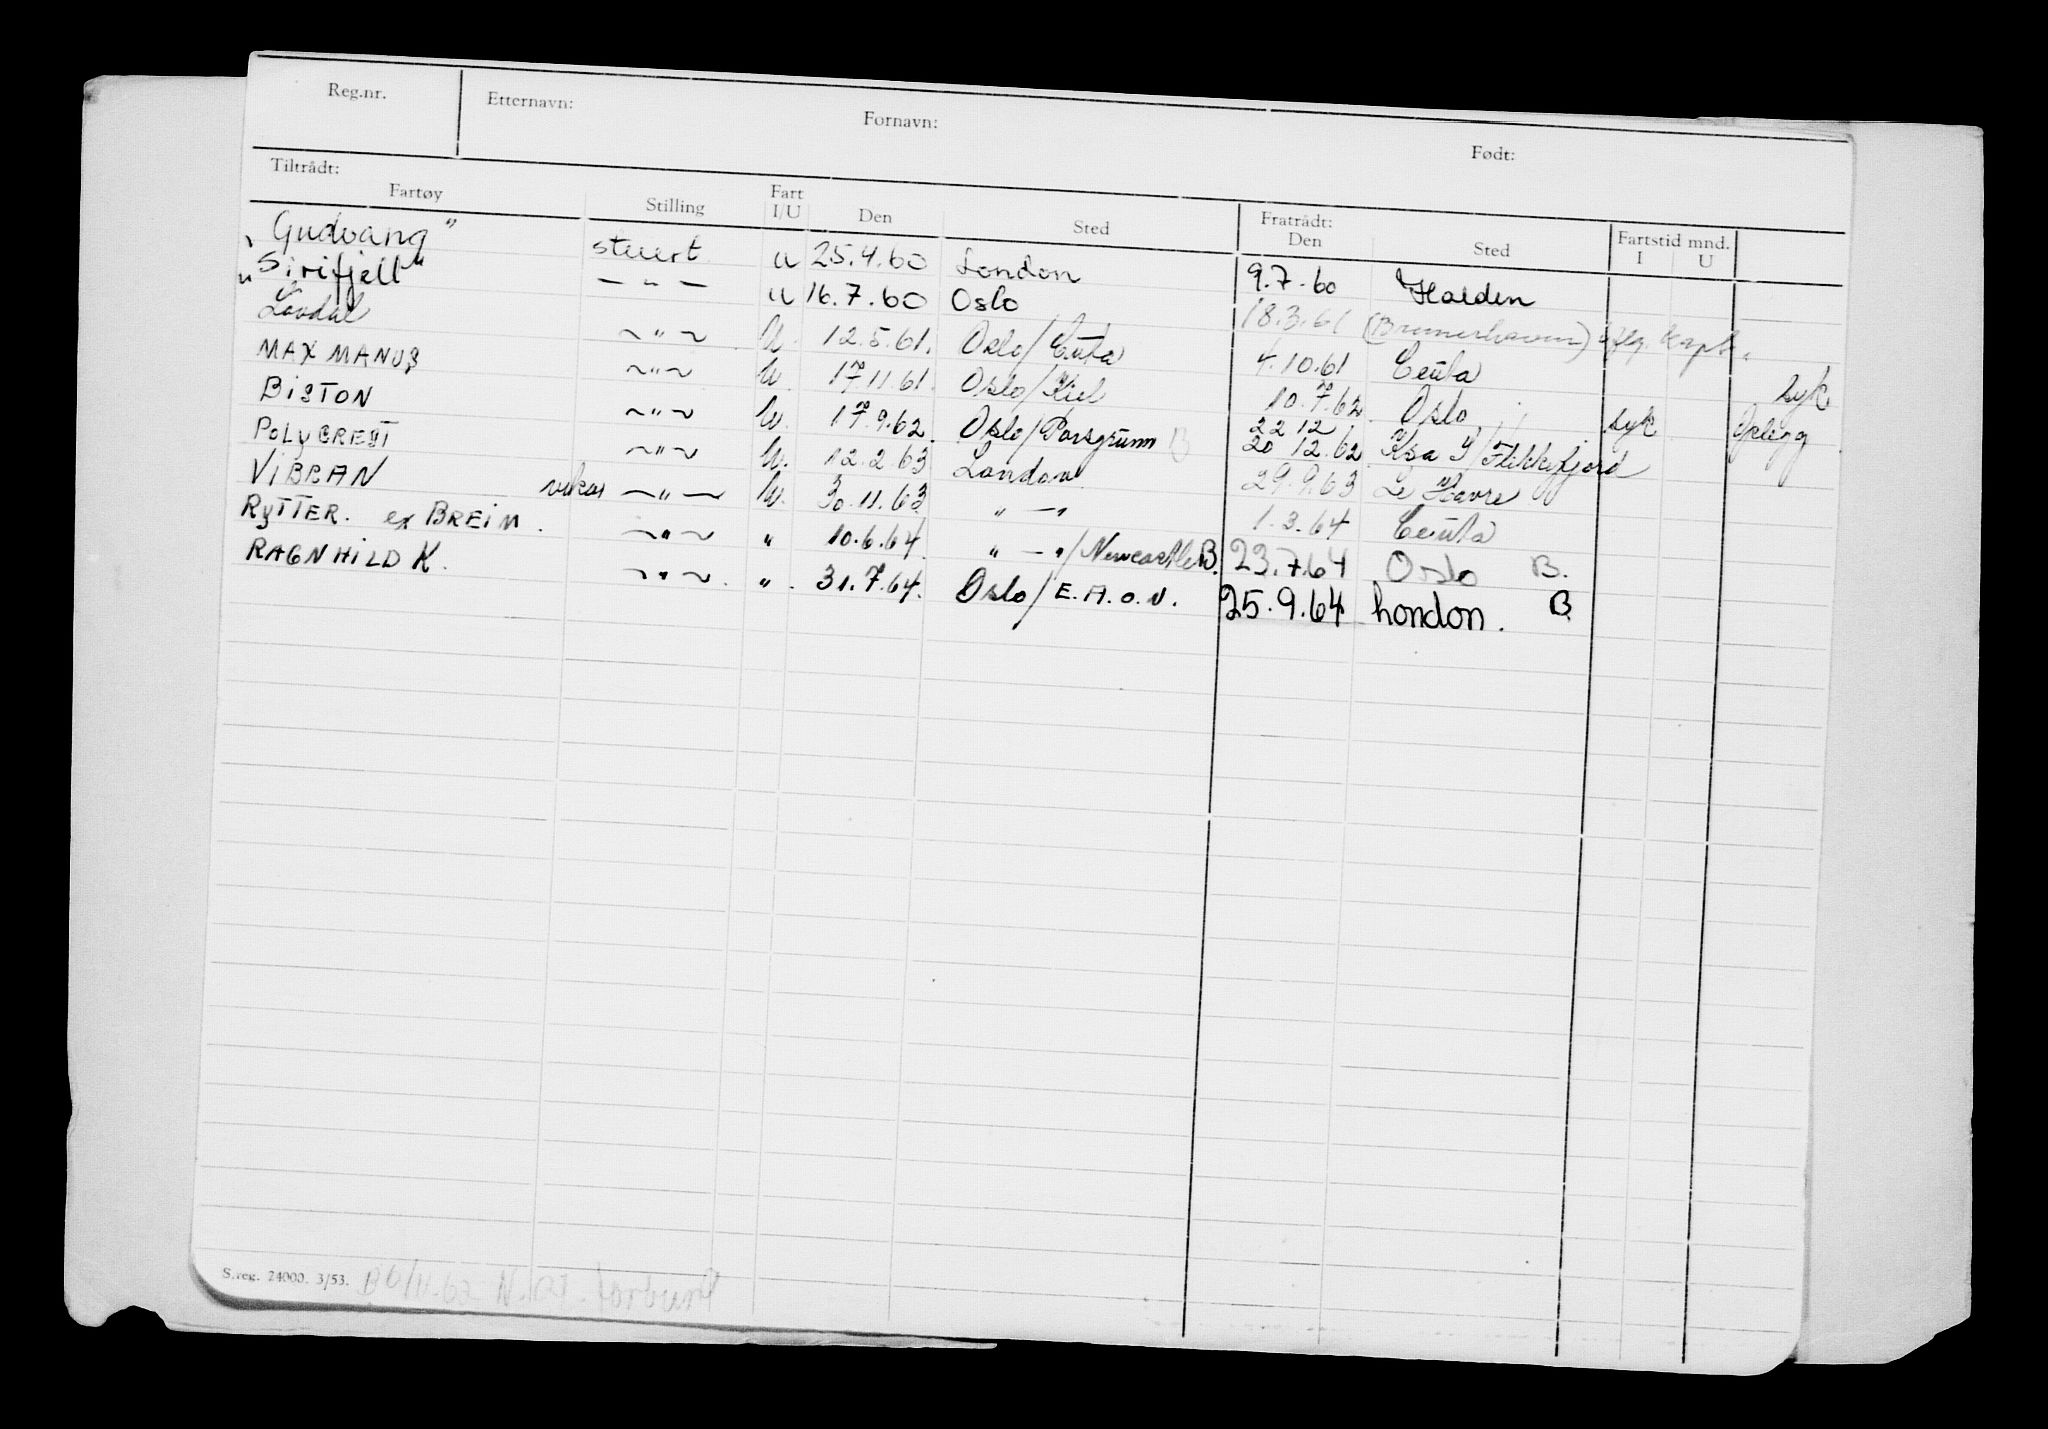 Reg.nr. Etternavn: Fornavn: Født:
Tiltrådt: Fratrådt:
Fartøy Stilling Fart I/U Den Sted Den Sted Fartstid mnd. I U
"Gudvang" stuert u 25.4.60 London 9.7.60 Halden
"Sirifjell" — " — u 16.7.60 Oslo 18.3.61 (Bremerhaven) iflg. kapt.
Lovdal ~ " ~ U. 12.5.61. Oslo/Ceuta 4.10.61 Ceuta syk
MAX MANUS ~ " ~ U. 17.11.61. Oslo/Kiel 10.7.62 Oslo syk
BISTON ~ " ~ U. 17.9.62. Oslo/Porsgrunn B 22 12 20 12.62 Flekkefjord Opplegg
POLYCREST ~ " ~ U. 12.2.63 London 29.9.63 Le Havre
VIBRAN vikar — " — U. 30.11.63 " — " 1.3.64 Ceuta
RYTTER. ex BREIM. ~ " ~ " 10.6.64. " — "/Newcastle B. 23.7.64 Oslo B.
RAGNHILD K. ~ " ~. ". 31.7.64. Oslo/E.A.O.N. 25.9.64 London. B
S.reg. 24000. 3/53. B 6/11.62